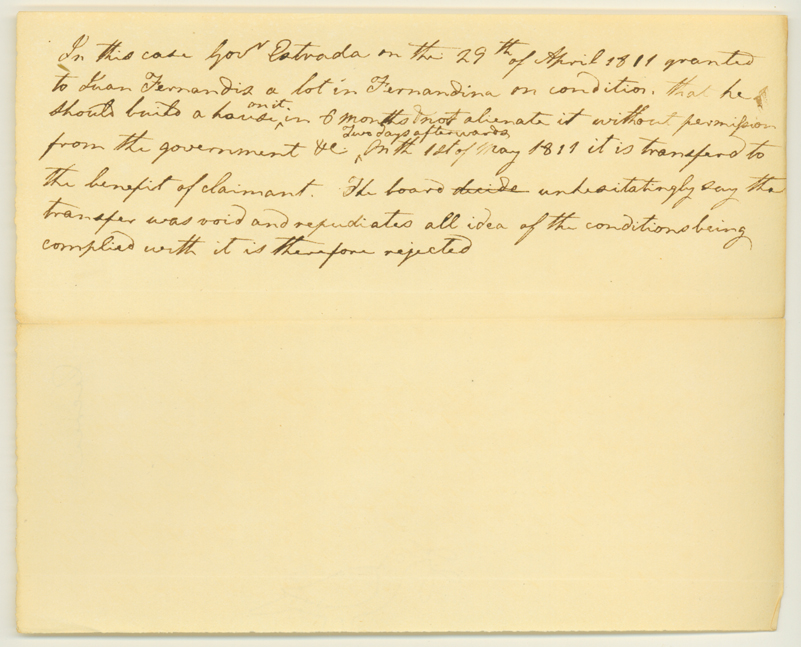 In this case Govr Estrada on the 29th of April 1811 granted
to Juan Fernandis a lot in Fernandina on condition, that he
should build a house on it in 6 months & not alienate it without permission
from the government &c. Two days afterwards On th 1st of May 1811 it is transferd to
the benefit of claimant. The board decide unhesitatingly say the
transfer was void and repudiates all idea of the conditions being
complied with it is therefore rejected